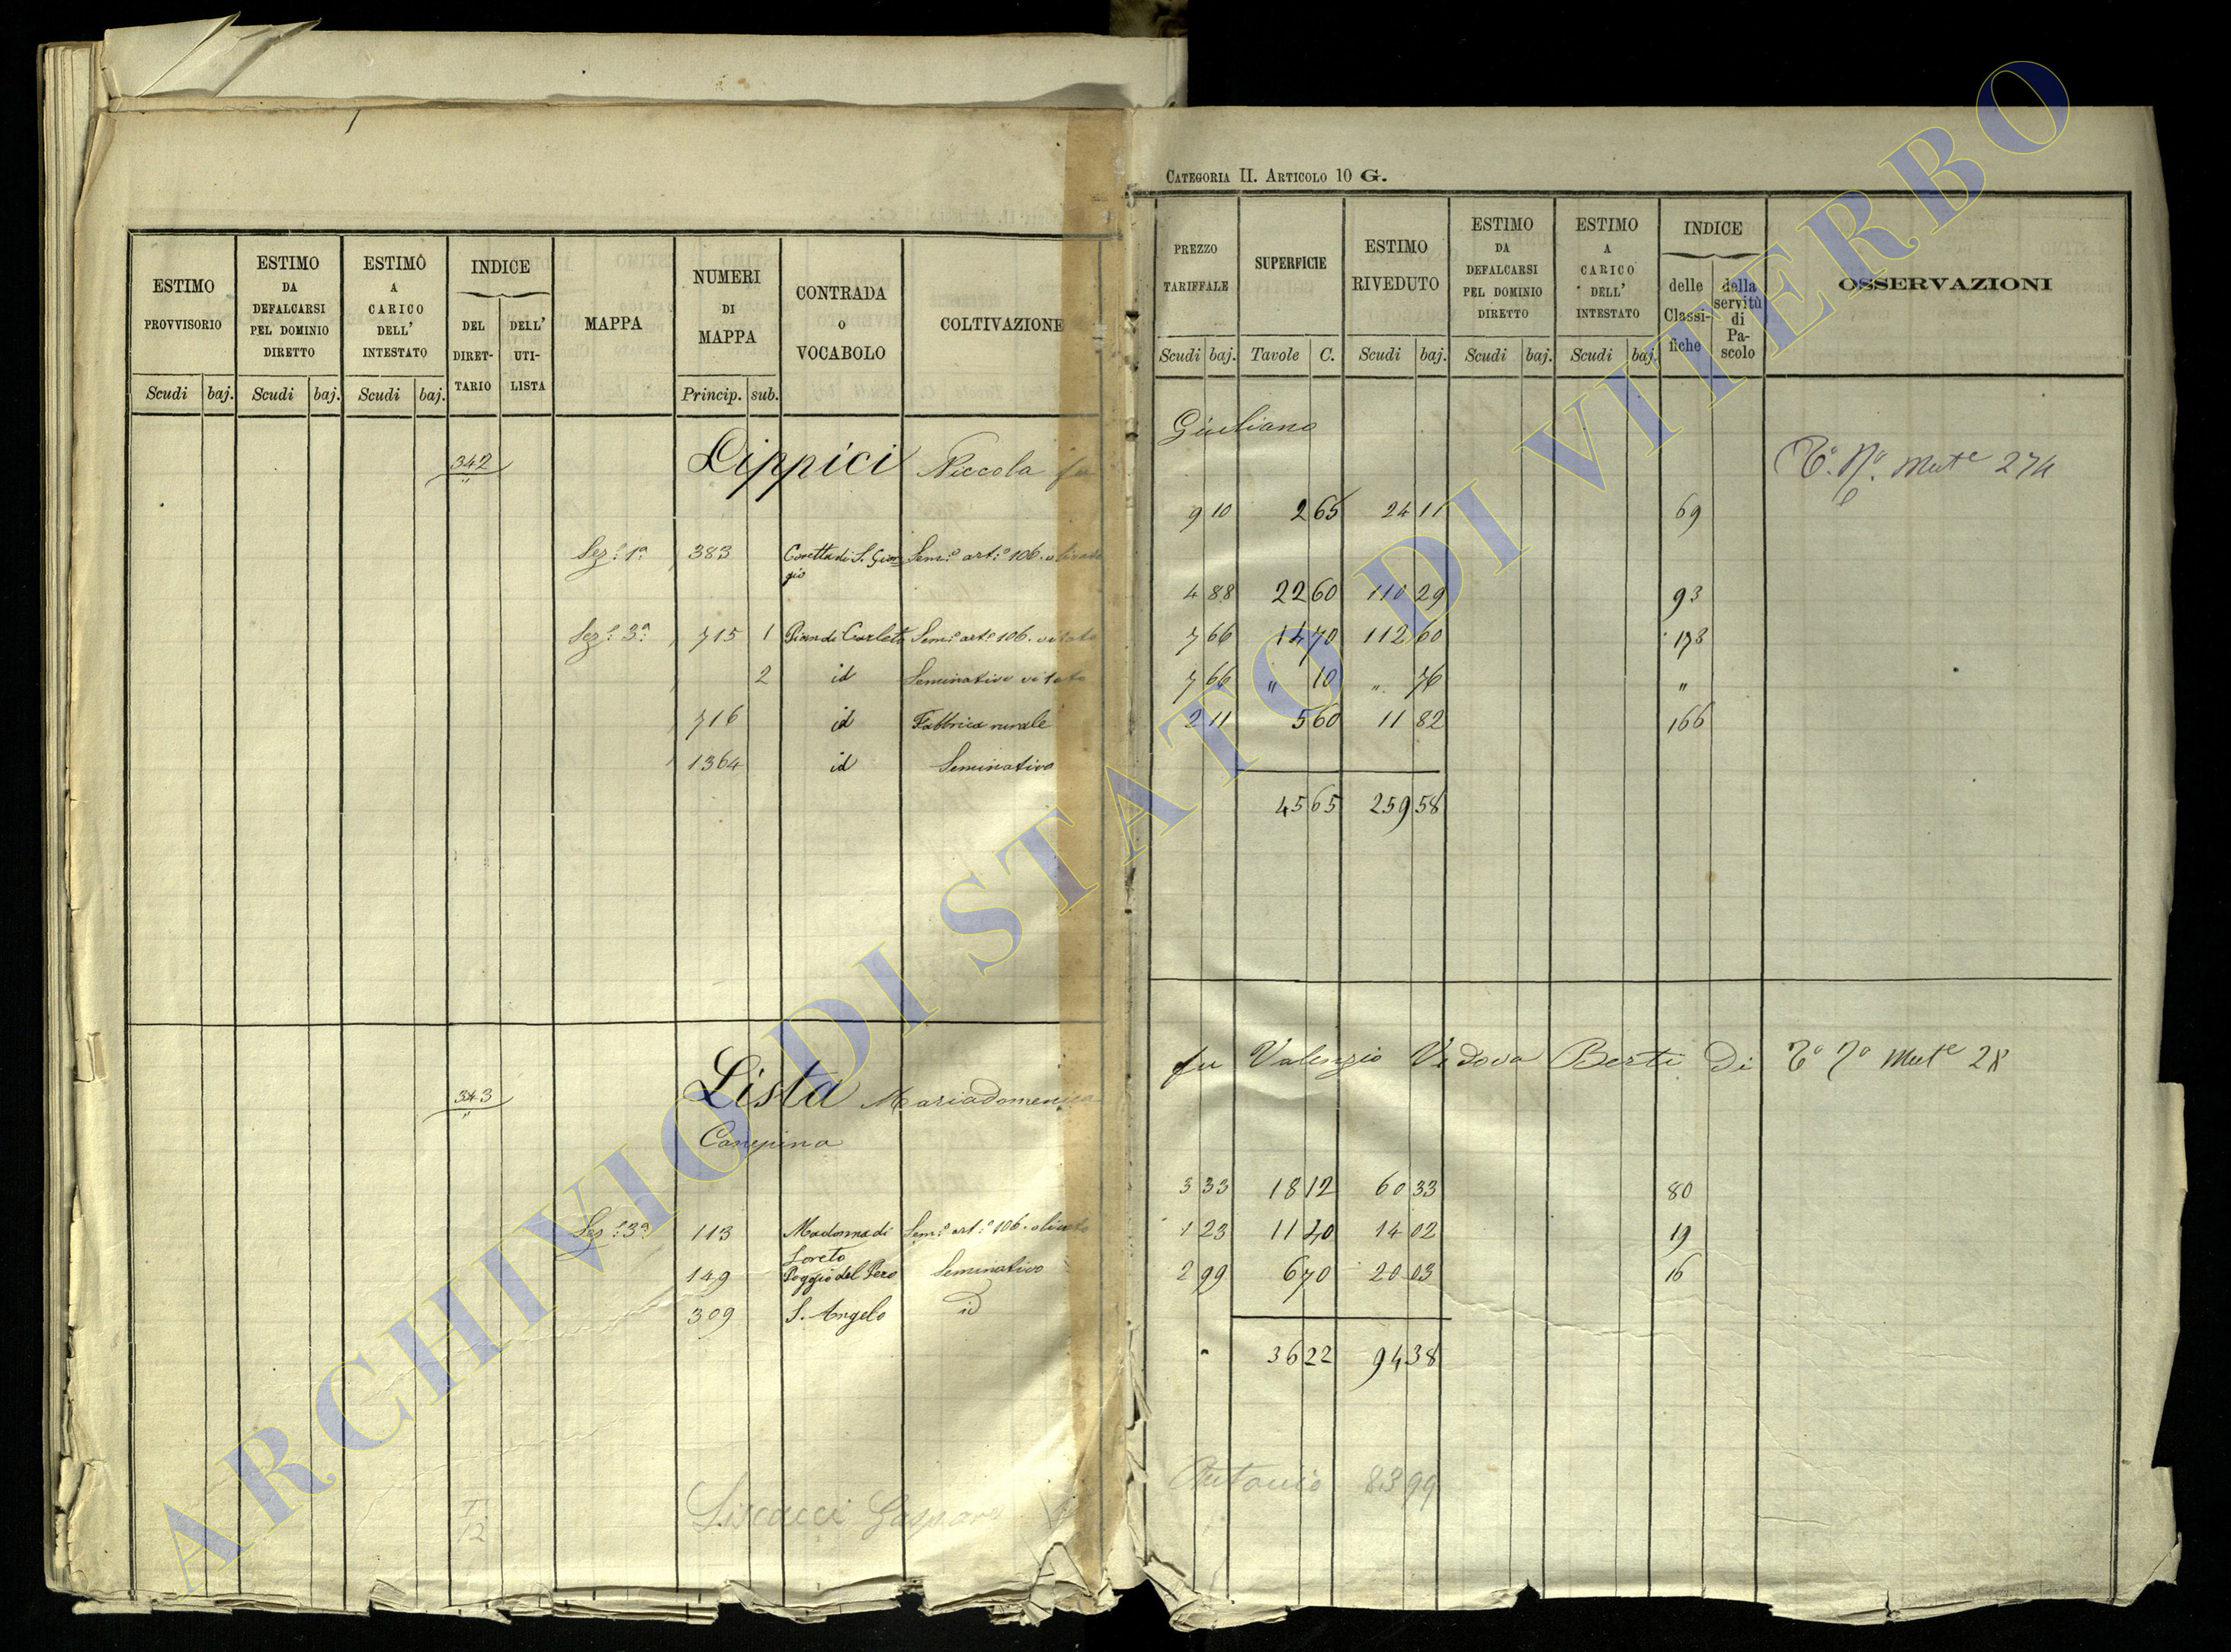 CATEGORIA II. ARTICOLO 10 G.
ESTIMO PROVVISORIO
ESTIMO DA DEFALCARSI PEL DOMINIO DIRETTO
ESTIMO A CARICO DELL' INTESTATO
INDICE
DEL DIRET-TARIO
DELL' UTI-LISTA
MAPPA
NUMERI DI MAPPA
CONTRADA O VOCABOLO
COLTIVAZIONE
Scudi baj. Scudi baj. Scudi baj. Princip. sub.
342 Lippici Niccola fu
Sez.e 1a 383 Coretta di S. Gior Sem.o art.o 106. olivato
gio
Sez.e 3a 715 1 Pian di Carletto Sem.o art.o 106. vitato
2 id Seminativo vitato
716 id Fabbrica rurale
1364 id Seminativo
343 Lista Mariadomenica
Canepina
Sez.e 3a 113 Madonna di Sem.o art.o 106. olivato
Loreto
149 Poggio del Pero Seminativo
309 S. Angelo id
Gaspare
12
PREZZO TARIFFALE
SUPERFICIE
ESTIMO RIVEDUTO
ESTIMO DA DEFALCARSI PEL DOMINIO DIRETTO
ESTIMO A CARICO DELL' INTESTATO
INDICE
delle Classi-fiche
della servitù di Pa-scolo
OSSERVAZIONI
Scudi baj. Tavole C. Scudi baj. Scudi baj. Scudi baj.
Giuliano
Mut.e 274
9 10 2 65 24 11 69
4 88 22 60 110 29 93
7 66 14 70 112 60 173
7 66 " 10 " 76 "
2 11 5 60 11 82 166
45 65 259 58
fu Valenzio Vedova Berti di Mut.e 28
3 33 18 12 60 33 80
1 23 11 40 14 02 19
2 99 6 70 20 03 16
36 22 94 38
Antonio 83 99
ARCHIVIO DI STATO DI VITERBO